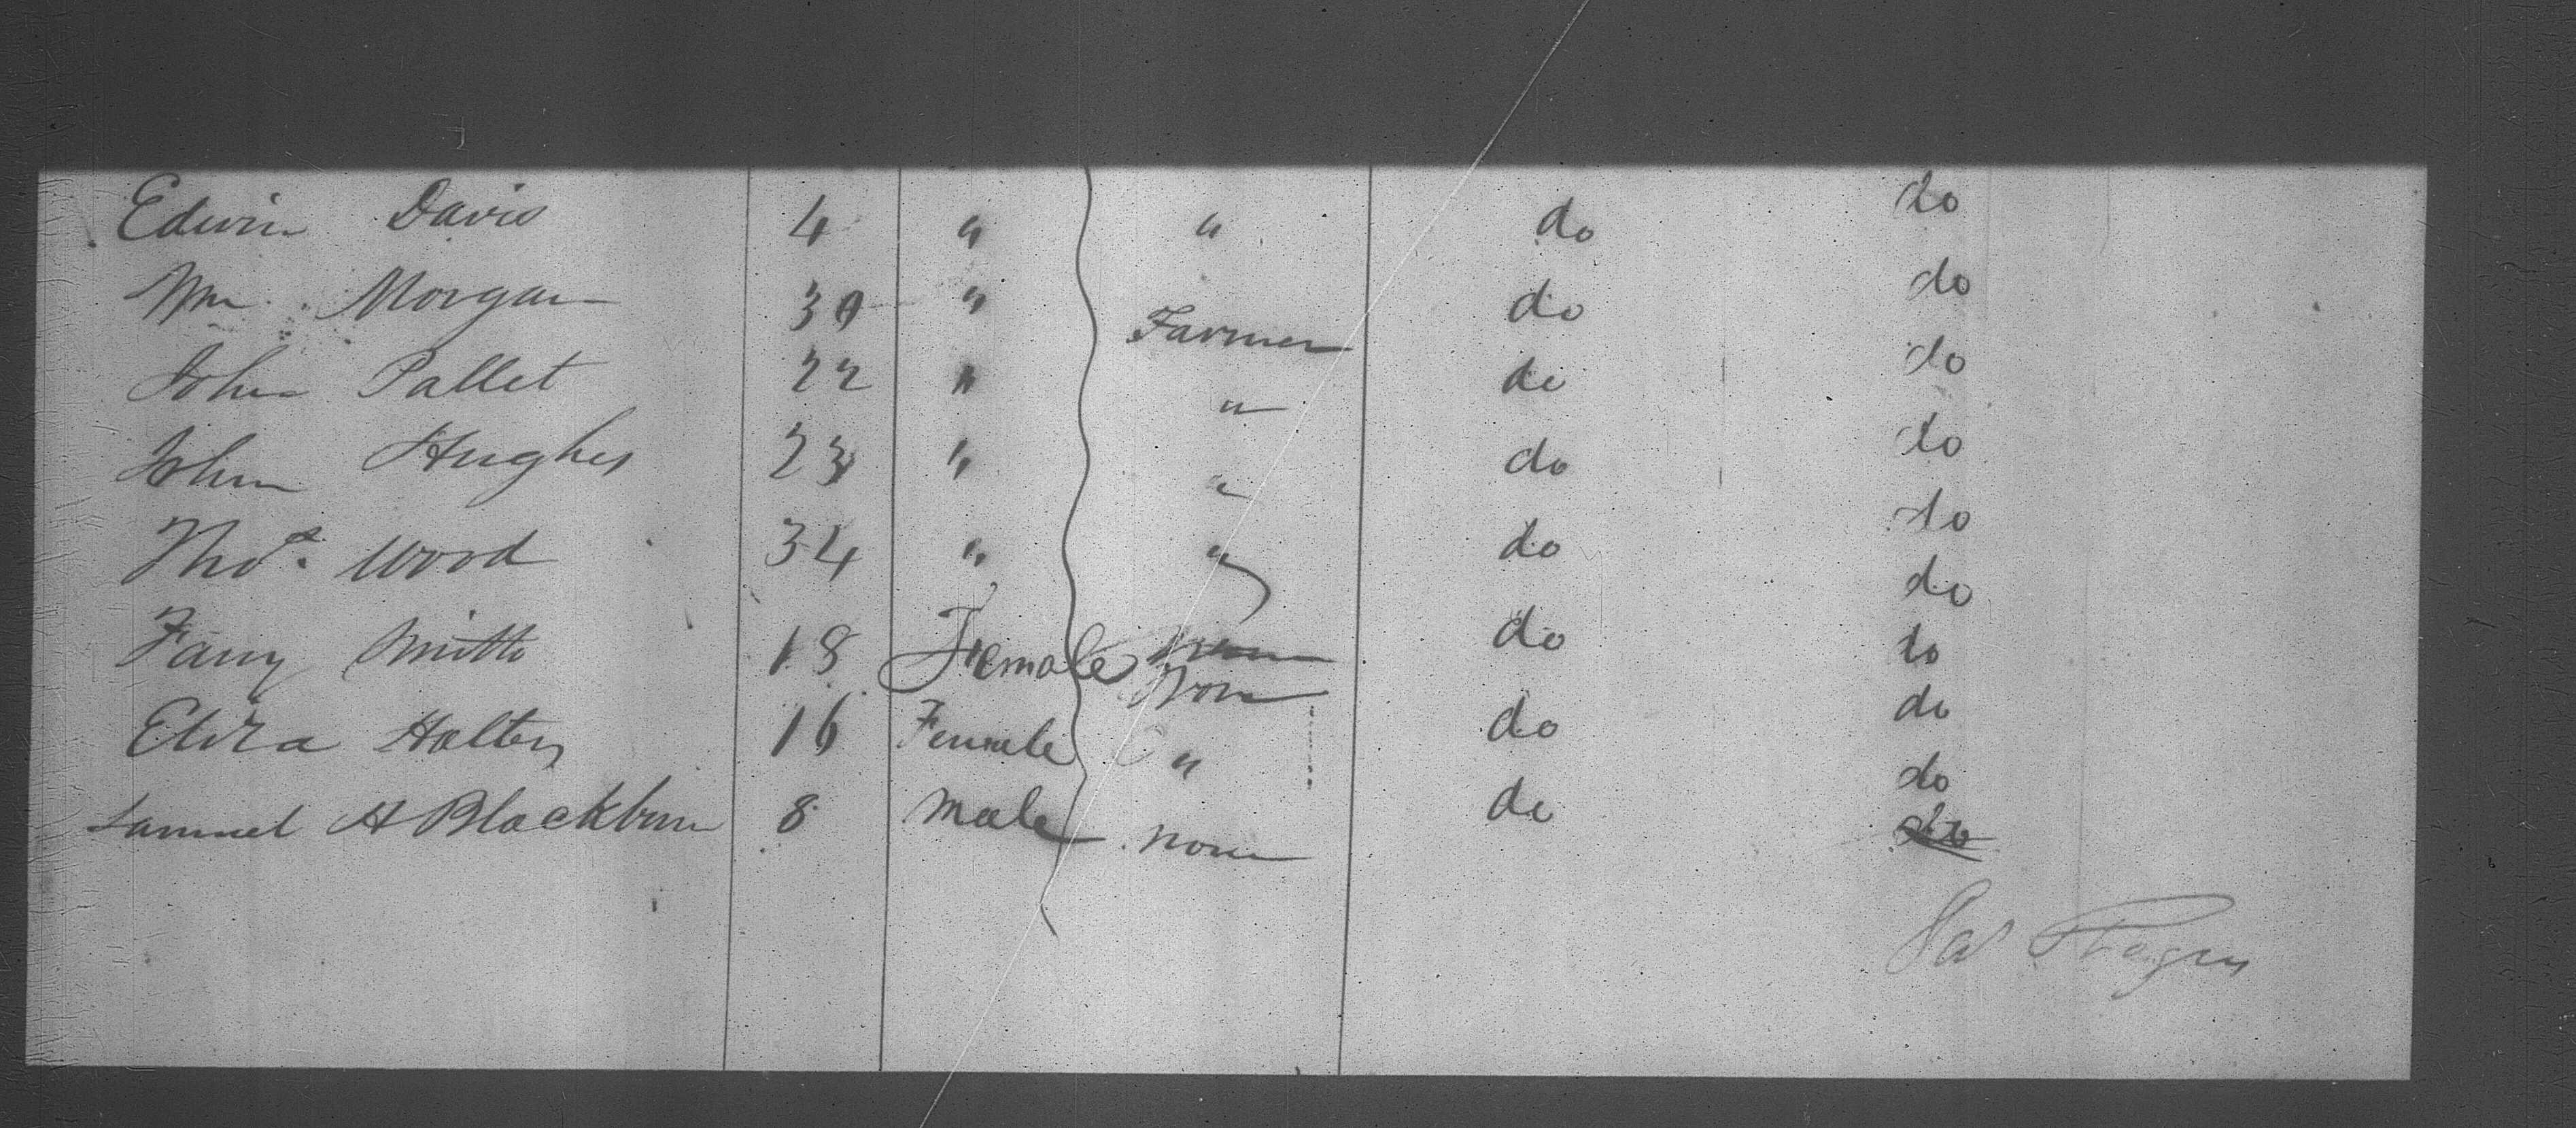 Edwin Davis 4 " " do do
Wm Morgan 30 " Farmer do do
John Pallet 22 " " do do
John Hughes 23 " " do do
Thos. Wood 34 " " do do
Fany Smith 18 Female None do do
do
Eliza Holten 16 Female " do do
Samuel H Blackburn 8 male none do do